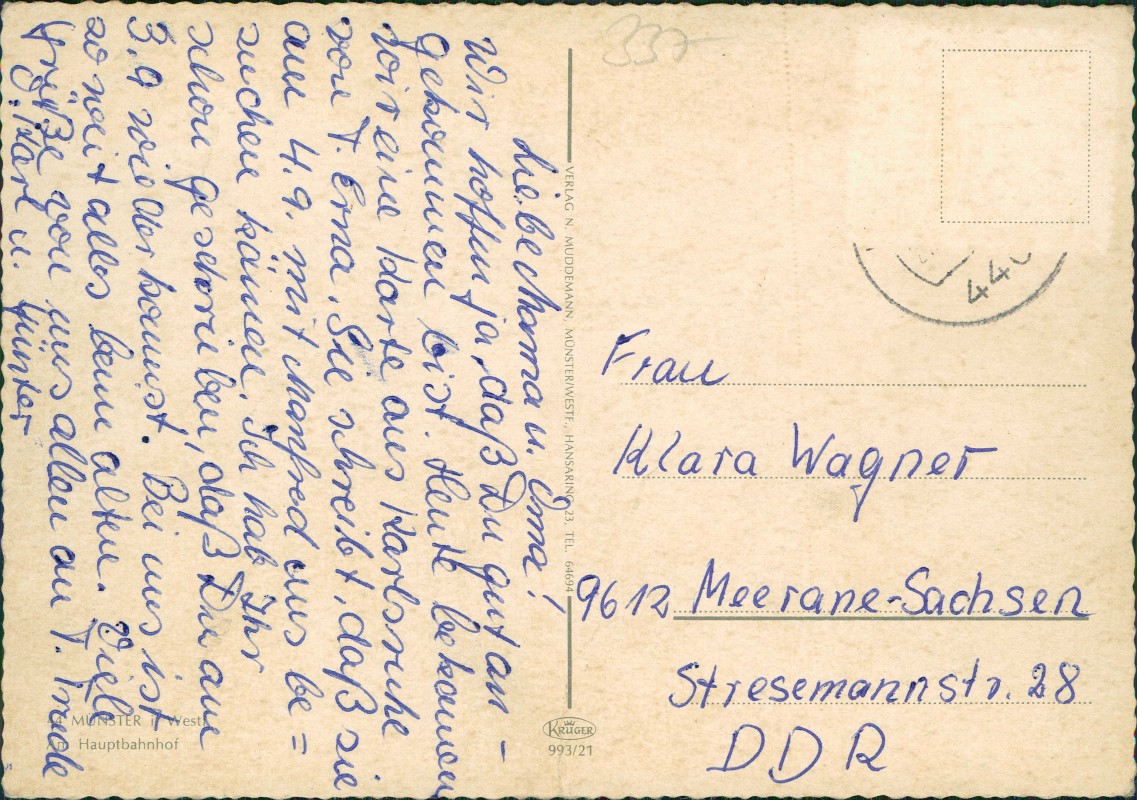 Liebe Mama u. Oma!
Wir hoffen ja, daß Du gut an-
gekommen bist. Heute bekamen
wir eine Karte aus Karlsruhe
von T. Erna. Sie schreibt, daß sie
am 4.9. mit Manfred uns be=
suchen kämen. Ich hab Ihr
schon geschrieben, daß Du am
3.9 wieder kommst. Bei uns ist
soweit alles beim alten. Viele
Grüße von uns allen an T. Trude
Karl u. Günter
44 MÜNSTER i. Westf.
Am Hauptbahnhof
VERLAG N. MUDDEMANN, MÜNSTER/WESTF., HANSARING 23, TEL. 64694
KRÜGER
993/21
337
44
Frau
Klara Wagner
9612 Meerane-Sachsen
Stresemannstr. 28
DDR